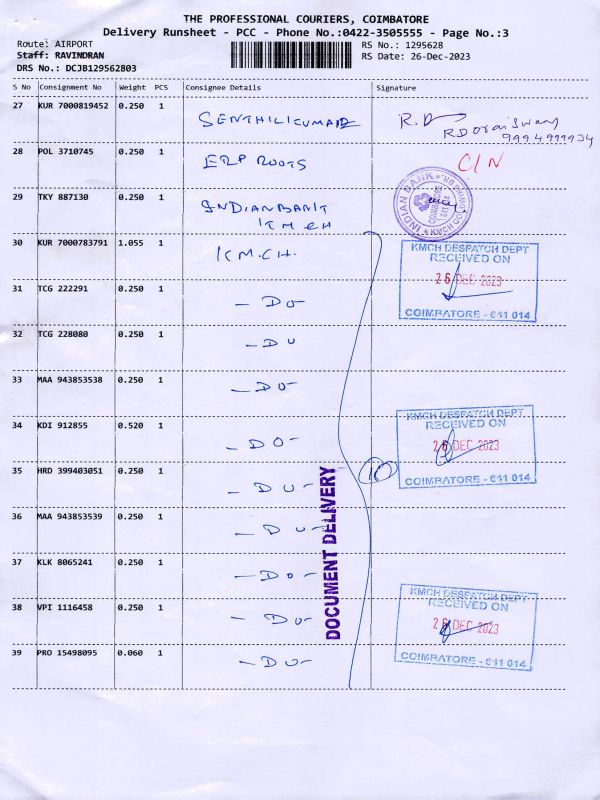 THE PROFESSIONAL COURIERS, COIMBATORE
Delivery Runsheet - PCC - Phone No.:0422-3505555 - Page No.:3
Route: AIRPORT
RS No.: 1295628
Staff: RAVINDRAN
RS Date: 26-Dec-2023
DRS No.: DCJB129562803
S No Consignment No Weight PCS Consignee Details Signature
27 KUR 7000819452 0.250 1 SENTHILKUMAR R.D
R.Doraiswamy
9994999934
28 POL 3710745 0.250 1 ERP ROOTS C/N
29 TKY 887130 0.250 1 INDIAN BANK
KMCH
INDIAN BANK
COIMBATORE
641 014
30 KUR 7000783791 1.055 1 K.M.CH.
KMCH DESPATCH DEPT
RECEIVED ON
26 DEC 2023
COIMBATORE - 641 014
31 TCG 222291 0.250 1 - DO -
32 TCG 228080 0.250 1 - DO
33 MAA 943853538 0.250 1 - DO -
34 KDI 912855 0.520 1 - DO -
KMCH DESPATCH DEPT
RECEIVED ON
26 DEC 2023
COIMBATORE - 641 014
35 HRD 399403051 0.250 1 - DO - 10
36 MAA 943853539 0.250 1 - DO -
DOCUMENT DELIVERY
37 KLK 8065241 0.250 1 - DO -
38 VPI 1116458 0.250 1 - DO -
KMCH DESPATCH DEPT
RECEIVED ON
26 DEC 2023
COIMBATORE - 641 014
39 PRO 15498095 0.060 1 - DO -